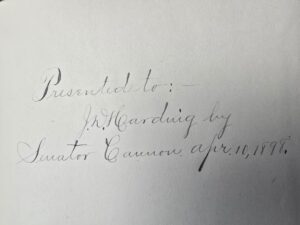 Presented to:-
J. D. Harding by
Senator Cannon Apr. 10, 1898.